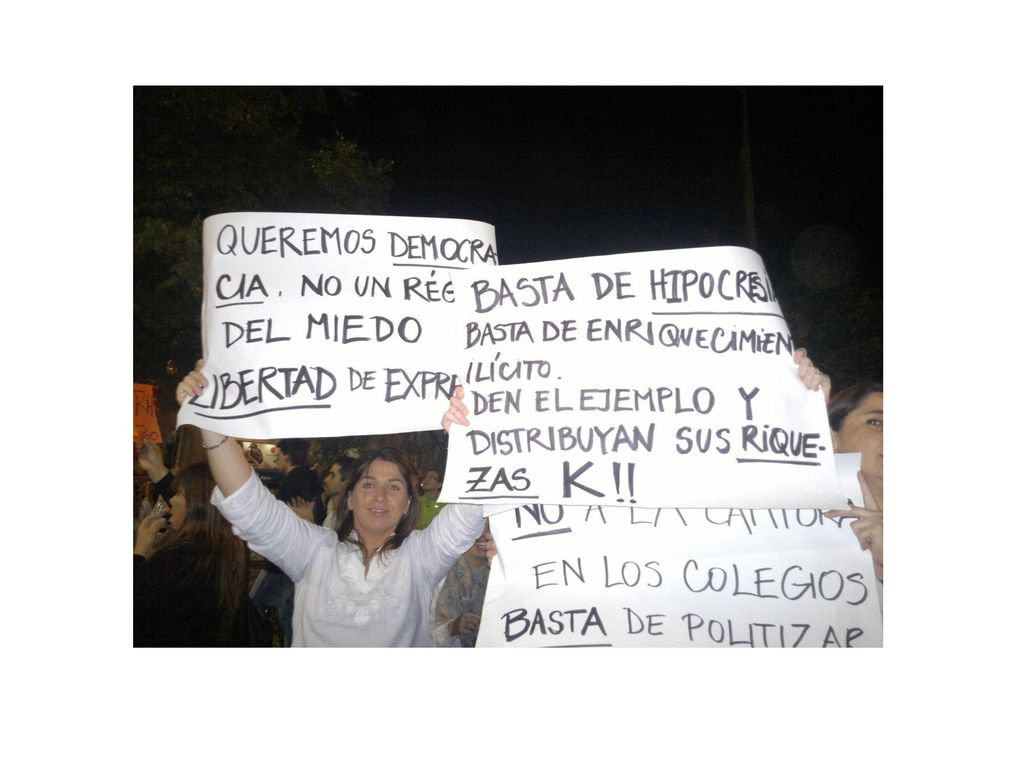 QUEREMOS DEMOCRA-
CIA. NO UN RÉG
DEL MIEDO
LIBERTAD DE EXPRE
BASTA DE HIPOCRESIA
BASTA DE ENRIQUECIMIEN
ILÍCITO.
DEN EL EJEMPLO Y
DISTRIBUYAN SUS RIQUE-
ZAS K!!
NO A LA CAMPORA
EN LOS COLEGIOS
BASTA DE POLITIZAR